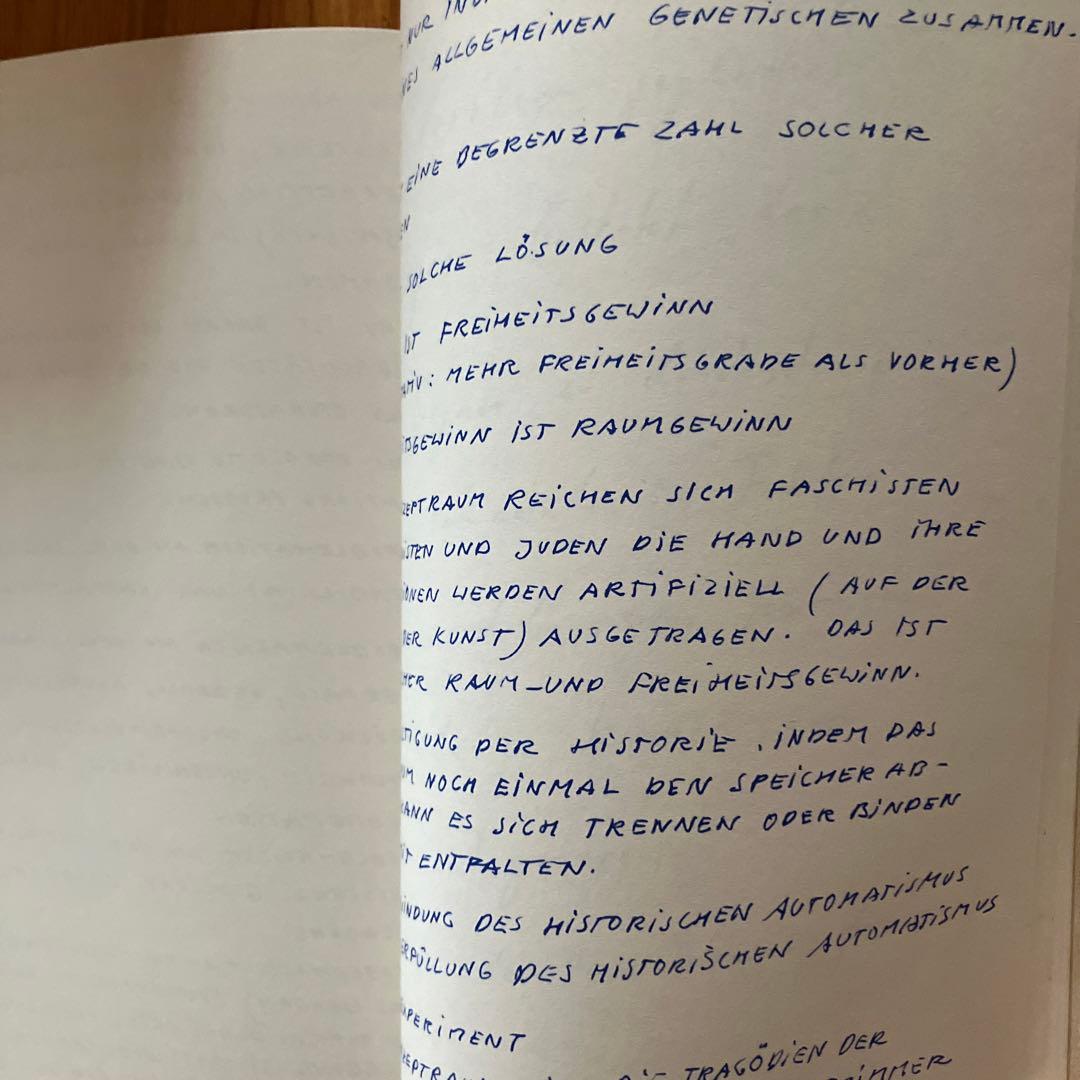 NUR
ALLGEMEINEN GENETISCHEN ZUSAMMEN.
EINE BEGRENZTE ZAHL SOLCHER
EN
SOLCHE LÖSUNG
IST FREIHEITSGEWINN
: MEHR FREIHEITSGRADE ALS VORHER)
TSGEWINN IST RAUMGEWINN
ZEPTRAUM REICHEN SICH FASCHISTEN
ISTEN UND JUDEN DIE HAND UND IHRE
IONEN WERDEN ARTIFIZIELL (AUF DER
DER KUNST) AUSGETRAGEN. DAS IST
HER RAUM-UND FREIHEITSGEWINN.
TIGUNG DER HISTORIE, INDEM DAS
UM NOCH EINMAL DEN SPEICHER AB-
KANN ES SICH TRENNEN ODER BINDEN
ENTFALTEN.
INDUNG DES HISTORISCHEN AUTOMATISMUS
ERFÜLLUNG DES HISTORISCHEN AUTOMATISMUS
XPERIMENT
ZEPTRAU DIE TRAGÖDIEN DER